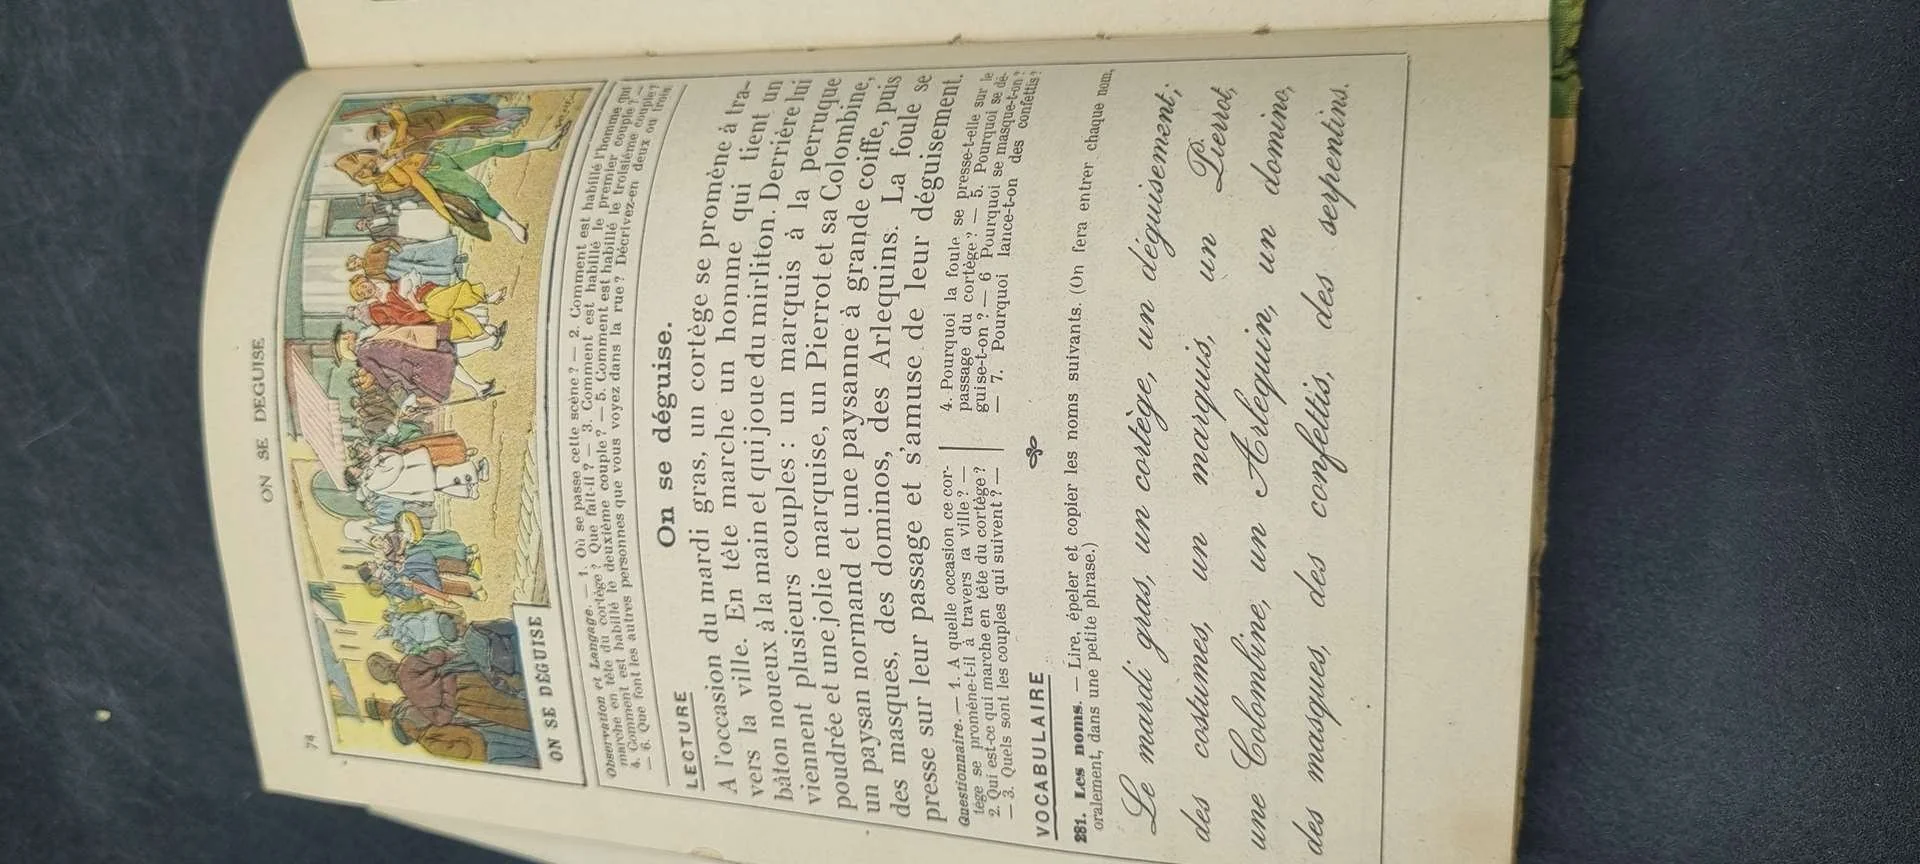 74
ON SE DEGUISE
ON SE DÉGUISE
Observation et Langage. — 1. Où se passe cette scène ? — 2. Comment est habillé l'homme qui
marche en tête du cortège ? Que fait-il ? — 3. Comment est habillé le premier couple ? —
4. Comment est habillé le deuxième couple ? — 5. Comment est habillé le troisième couple ?
— 6. Que font les autres personnes que vous voyez dans la rue ? Décrivez-en deux ou trois.
LECTURE
On se déguise.
A l'occasion du mardi gras, un cortège se promène à tra-
vers la ville. En tête marche un homme qui tient un
bâton noueux à la main et qui joue du mirliton. Derrière lui
viennent plusieurs couples : un marquis à la perruque
poudrée et une jolie marquise, un Pierrot et sa Colombine,
un paysan normand et une paysanne à grande coiffe, puis
des masques, des dominos, des Arlequins. La foule se
presse sur leur passage et s'amuse de leur déguisement.
Questionnaire. — 1. A quelle occasion ce cor-
tège se promène-t-il à travers la ville ? —
2. Qui est-ce qui marche en tête du cortège ?
— 3. Quels sont les couples qui suivent ? —
4. Pourquoi la foule se presse-t-elle sur le
passage du cortège ? — 5. Pourquoi se dé-
guise-t-on ? — 6 Pourquoi se masque-t-on ?
— 7. Pourquoi lance-t-on des confettis ?
VOCABULAIRE
281. Les noms. — Lire, épeler et copier les noms suivants. (On fera entrer chaque nom,
oralement, dans une petite phrase.)
Le mardi gras, un cortège, un déguisement;
des costumes, un marquis, un Pierrot,
une Colombine, un Arlequin, un domino,
des masques, des confettis, des serpentins.